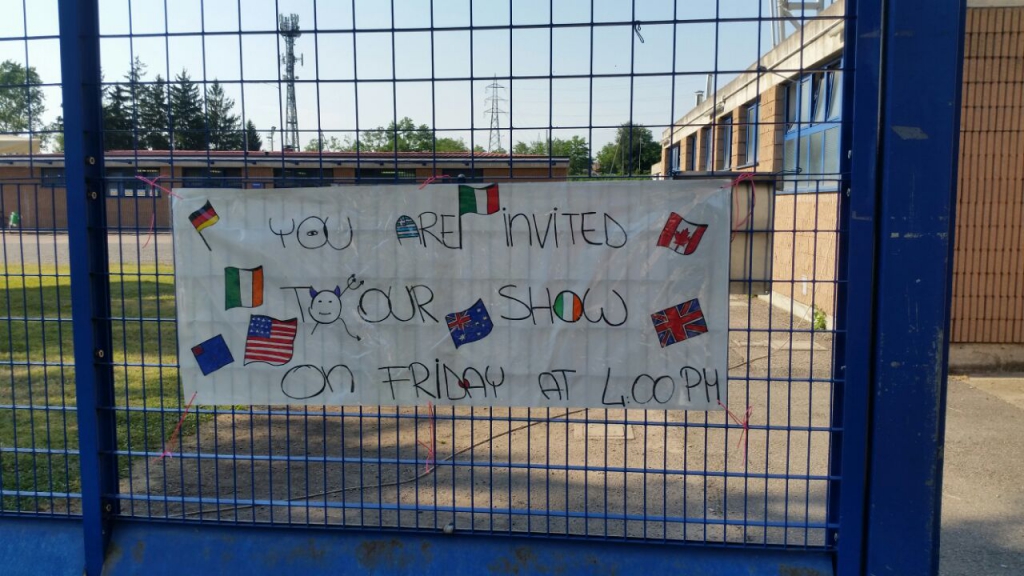 YOU ARE INVITED
TO OUR SHOW
ON FRIDAY AT 4:00 PM